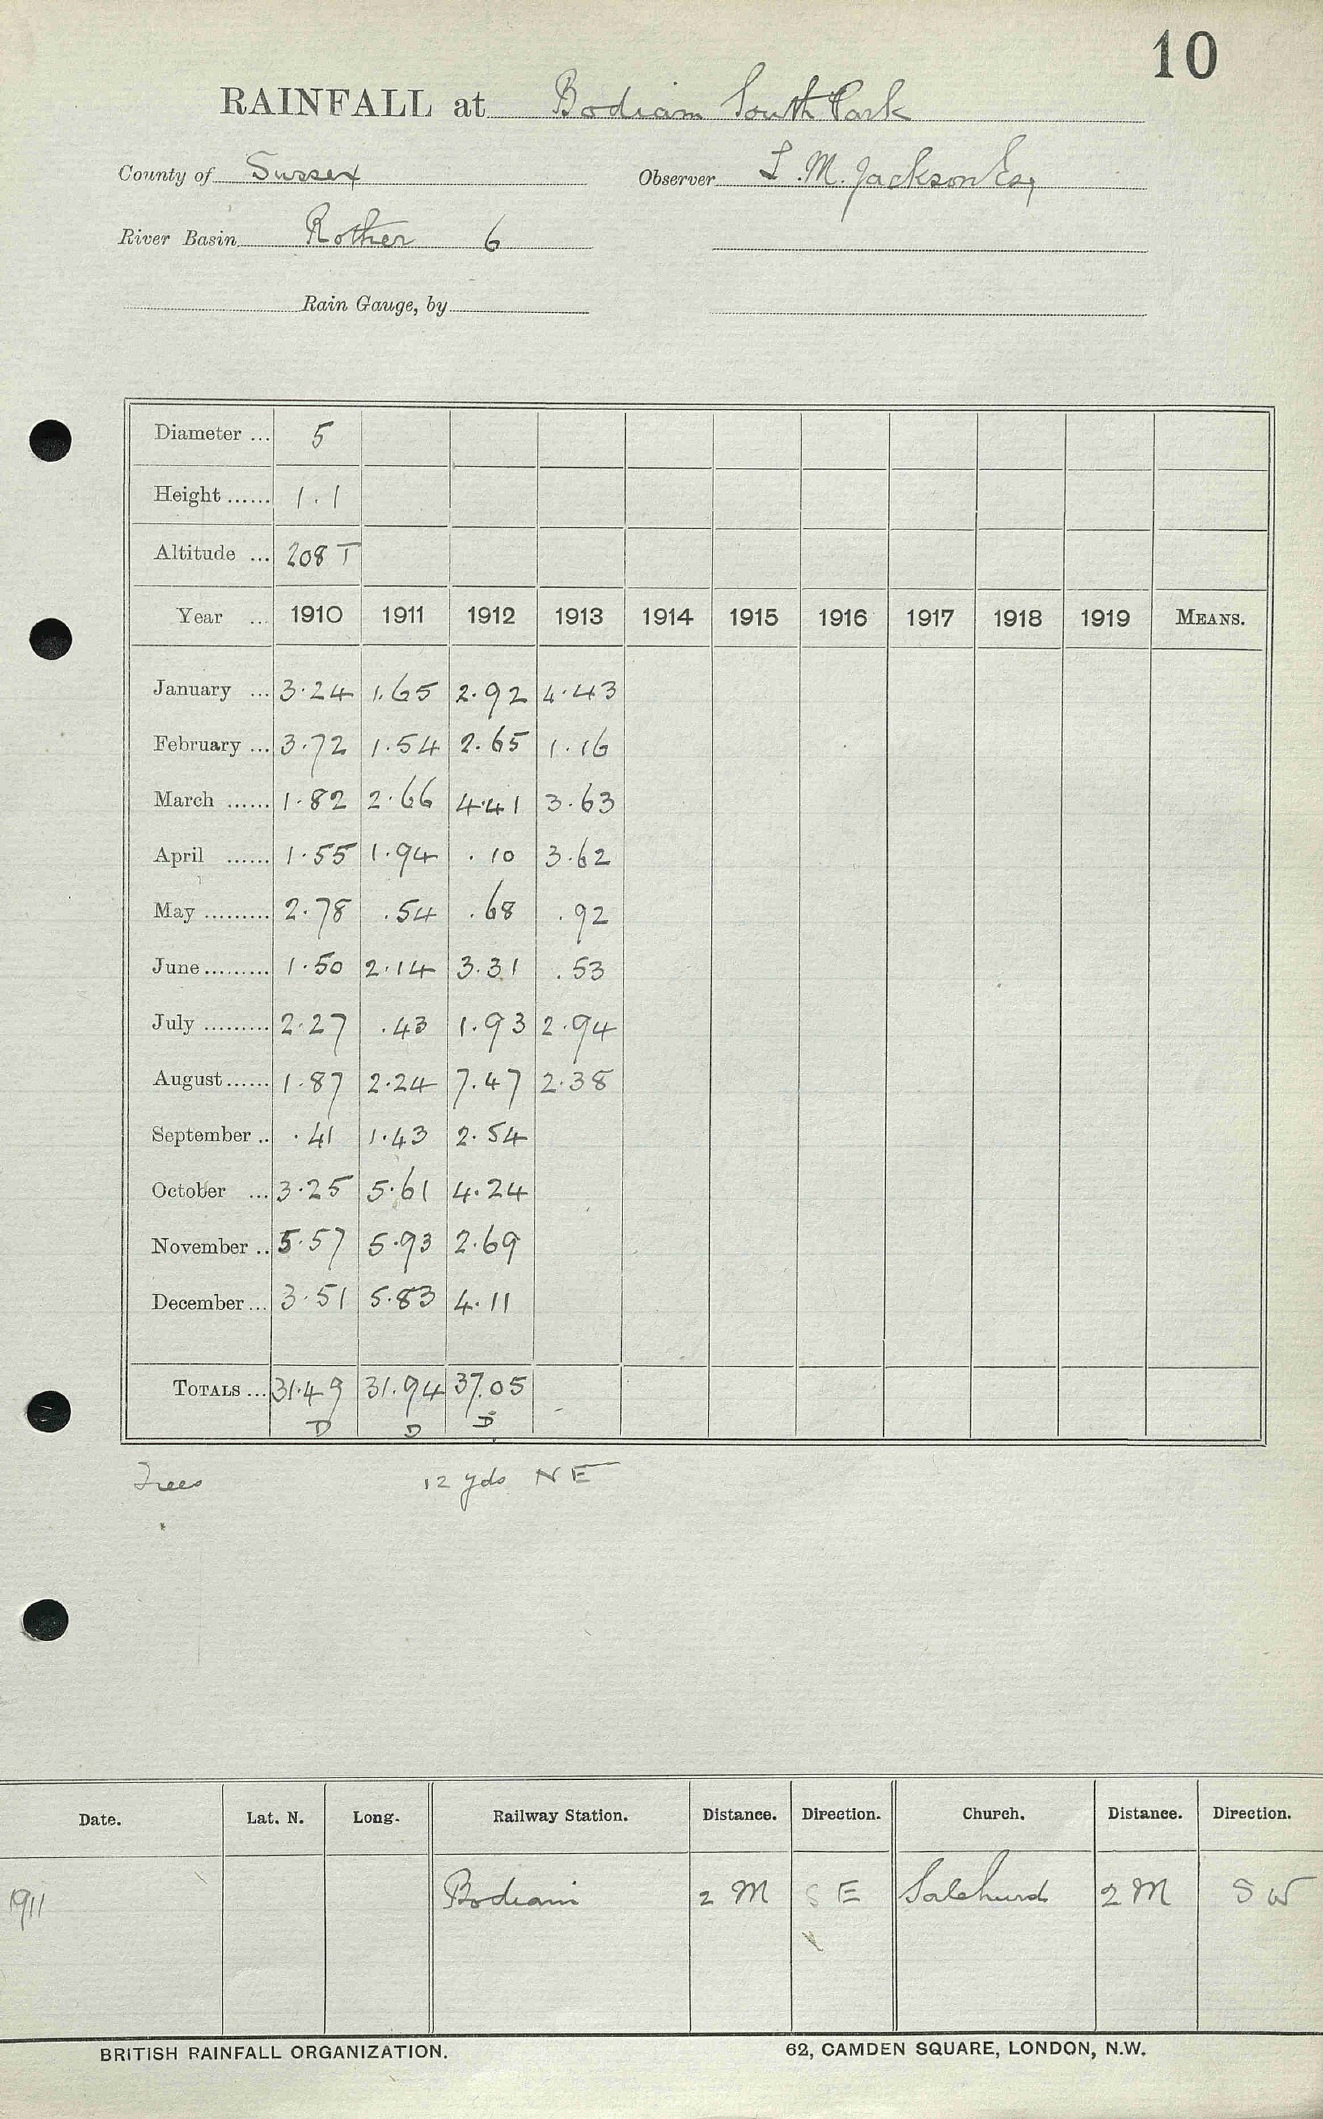 10
RAINFALL at Bodiam South Park
County of Sussex Observer L. M. Jackson Esq
River Basin Rother 6
Rain Gauge, by
Diameter ... 5
Height ...... 1.1
Altitude ... 208 T
Year ... 1910 1911 1912 1913 1914 1915 1916 1917 1918 1919 MEANS.
January ... 3.24 1.65 2.92 4.43
February ... 3.72 1.54 2.65 1.16
March ...... 1.82 2.66 4.41 3.63
April ...... 1.55 1.94 .10 3.62
May ......... 2.78 .54 .68 .92
June ......... 1.50 2.14 3.31 .53
July ......... 2.27 .43 1.93 2.94
August ...... 1.87 2.24 7.47 2.38
September .. .41 1.43 2.54
October ... 3.25 5.61 4.24
November .. 5.57 5.93 2.69
December ... 3.51 5.83 4.11
TOTALS ... 31.49 31.94 37.05
D D D
Trees 12 yds NE
Date. Lat. N. Long. Railway Station. Distance. Direction. Church. Distance. Direction.
1911 Bodiam 2 M S E Salehurst 2 M S W
BRITISH RAINFALL ORGANIZATION. 62, CAMDEN SQUARE, LONDON, N.W.